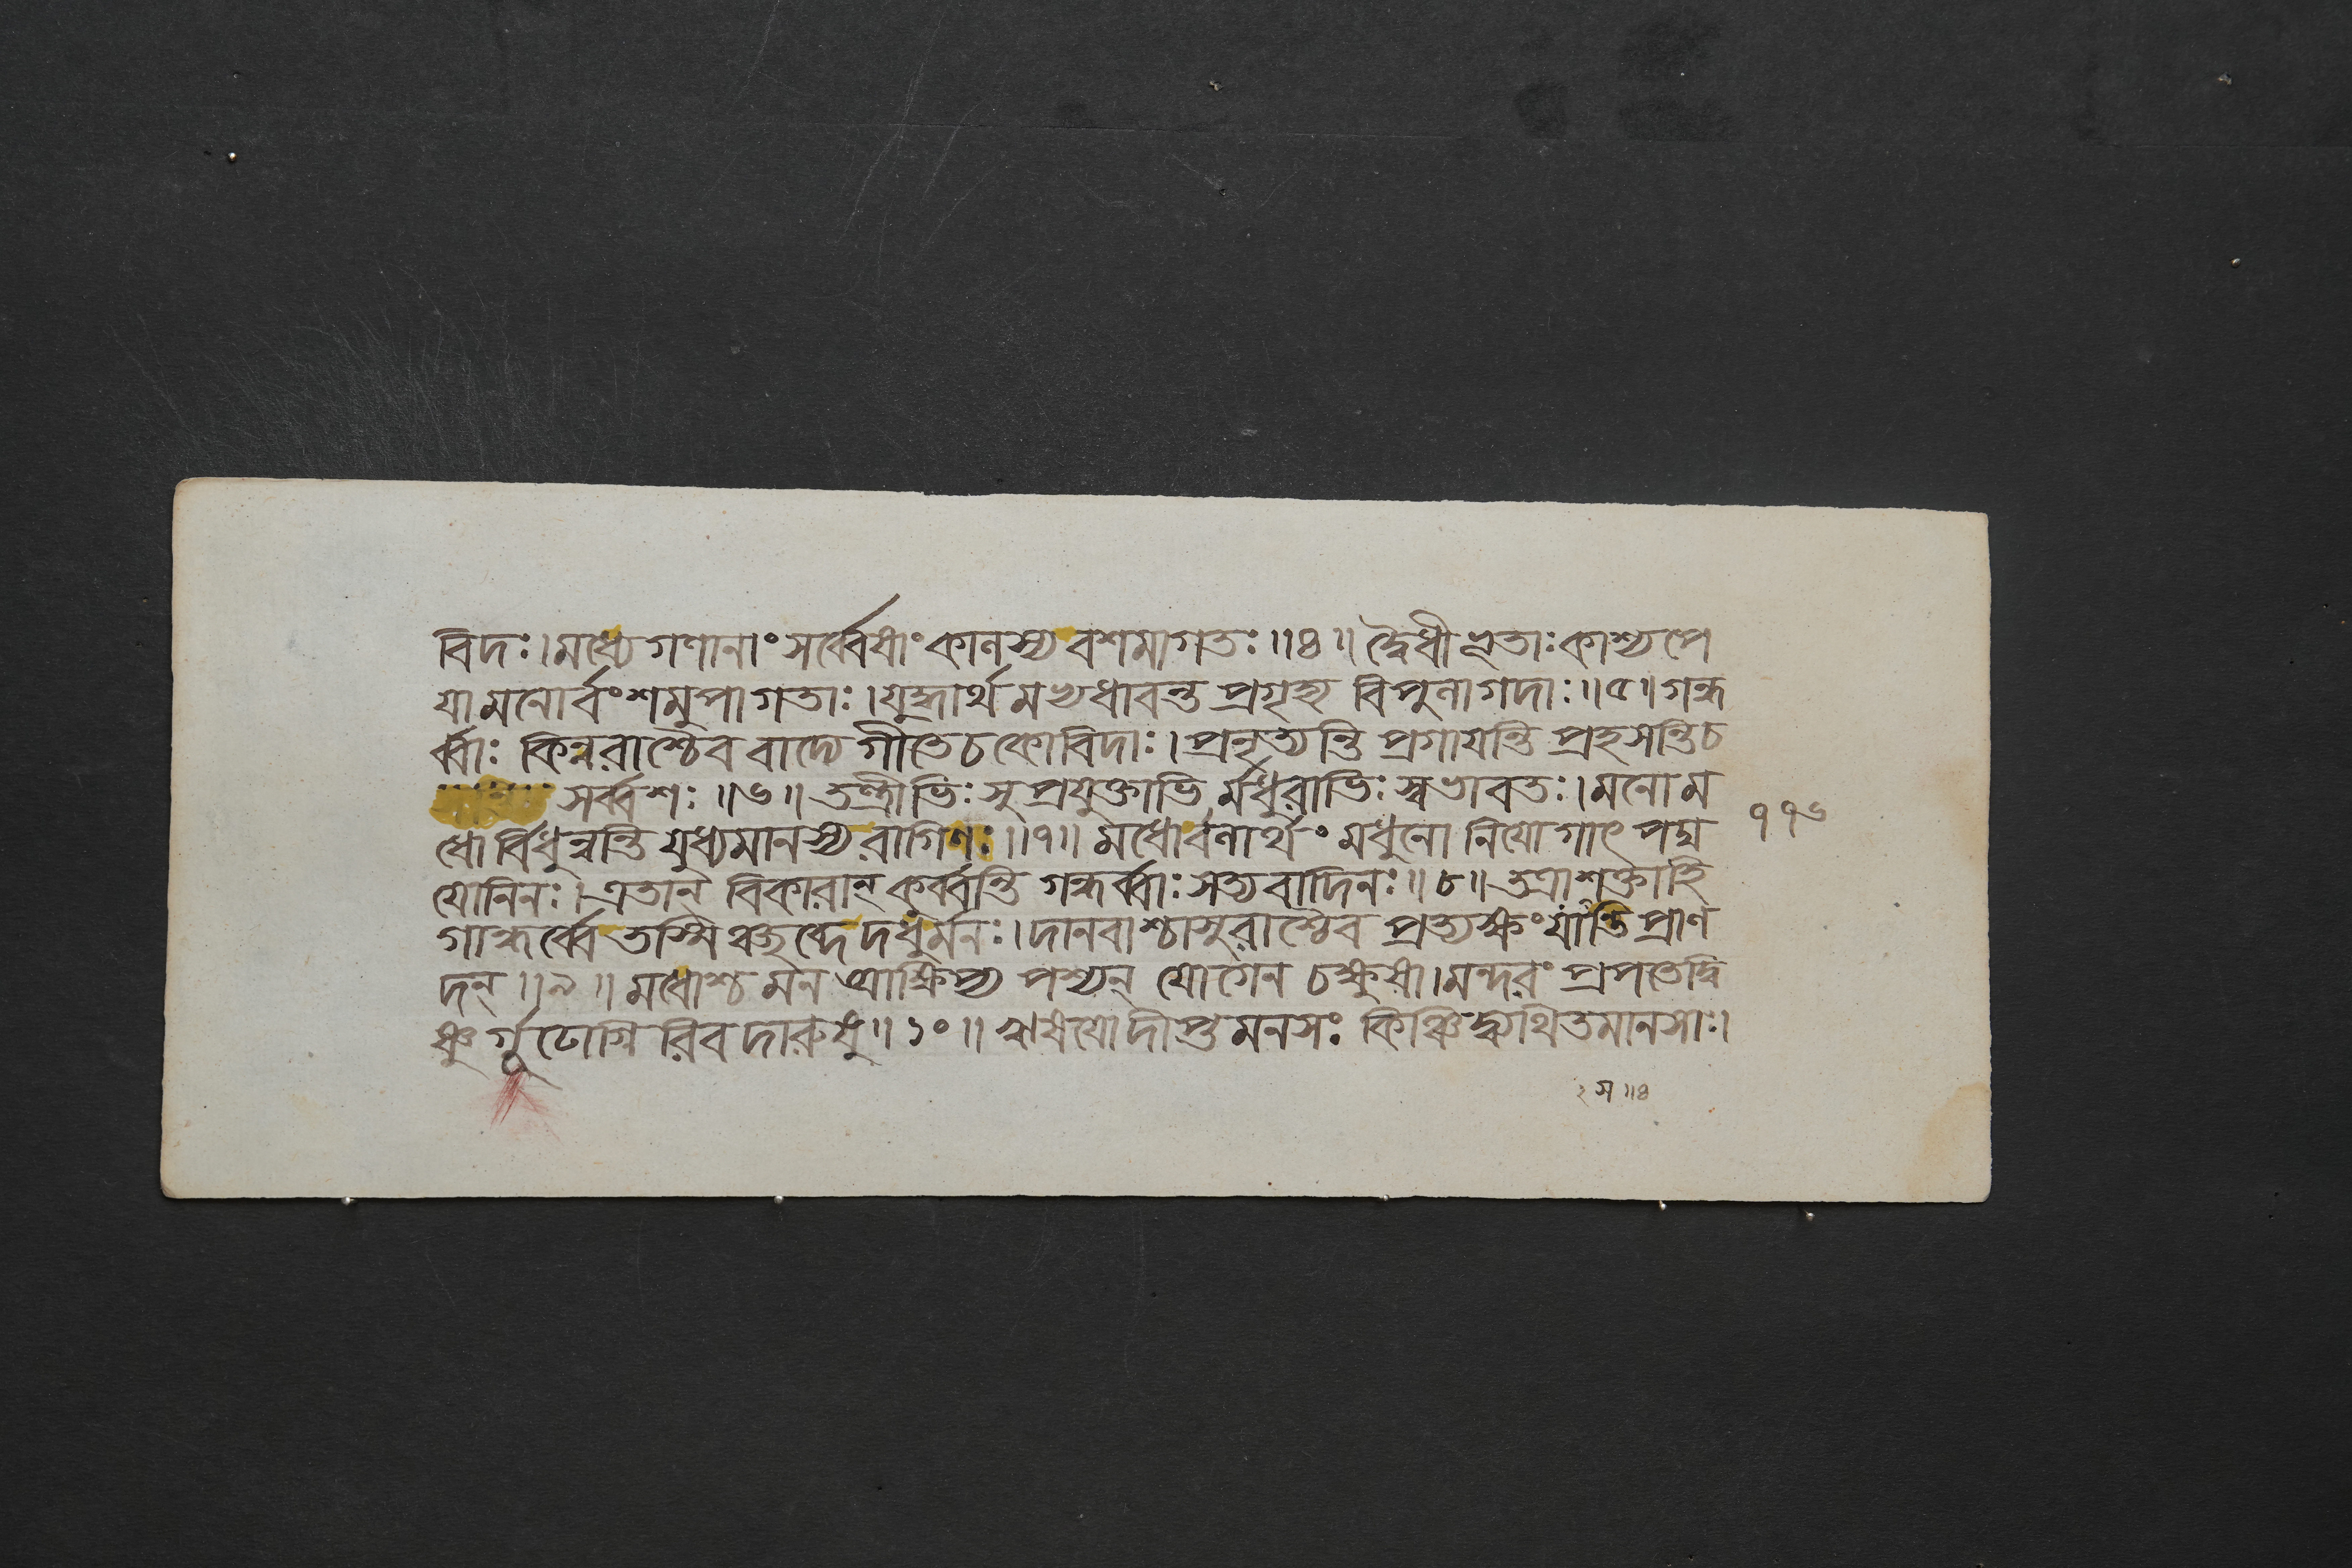 বিদঃ।মধ্যে গণানাং সর্ব্বেষাং কালস্য বশমাগতঃ॥৪॥ দ্বৈধীভূতাঃ কাশ্যপে
যা মনোর্বংশমুপাগতাঃ।যুদ্ধার্থমভ্যধাবন্ত প্রগৃহ্য বিপুলা গদাঃ॥৫॥ গন্ধ
র্ব্বাঃ কিন্নরাশ্চৈব বাদ্যে গীতে চ কোবিদাঃ। প্রনৃত্যন্তি প্রগায়ন্তি প্রহসন্তি চ
সর্ব্বশঃ॥৬॥ তন্ত্রীভিঃ সুপ্রযুক্তাভি র্মধুরাভিঃ স্বভাবতঃ। মনো ম
ধো র্বিধুন্বন্তি যুধ্যমানস্য রাগিণঃ॥৭॥ মধোর্বলার্থং মধুনো নিয়োগাৎ পদ্ম
যোনিনঃ। এতান্ বিকারান্ কুর্ব্বন্তি গন্ধর্ব্বাঃ সত্যবাদিনঃ॥৮॥ তত্রাশক্তাহি
গান্ধর্ব্বে তস্মি দধুর্মনঃ। দানবাশ্চাসুরাশ্চৈব প্রত্যক্ষং যান্তি প্রাণ
দন্॥৯॥ মধোশ্চ মন আক্ষিপ্য পশ্যন্ যোগেন চক্ষুষা। মন্দরং প্রপতেদ্বি
ষ্ণু র্গূঢোগ্নি রিব দারুষু॥১০॥ ঋষয়ো দীপ্তমনসঃ কিঞ্চিদ্ব্যথিতমানসাঃ।
১৭৬
২ স ॥৪